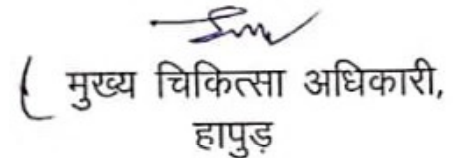 ( मुख्य चिकित्सा अधिकारी,
हापुड़